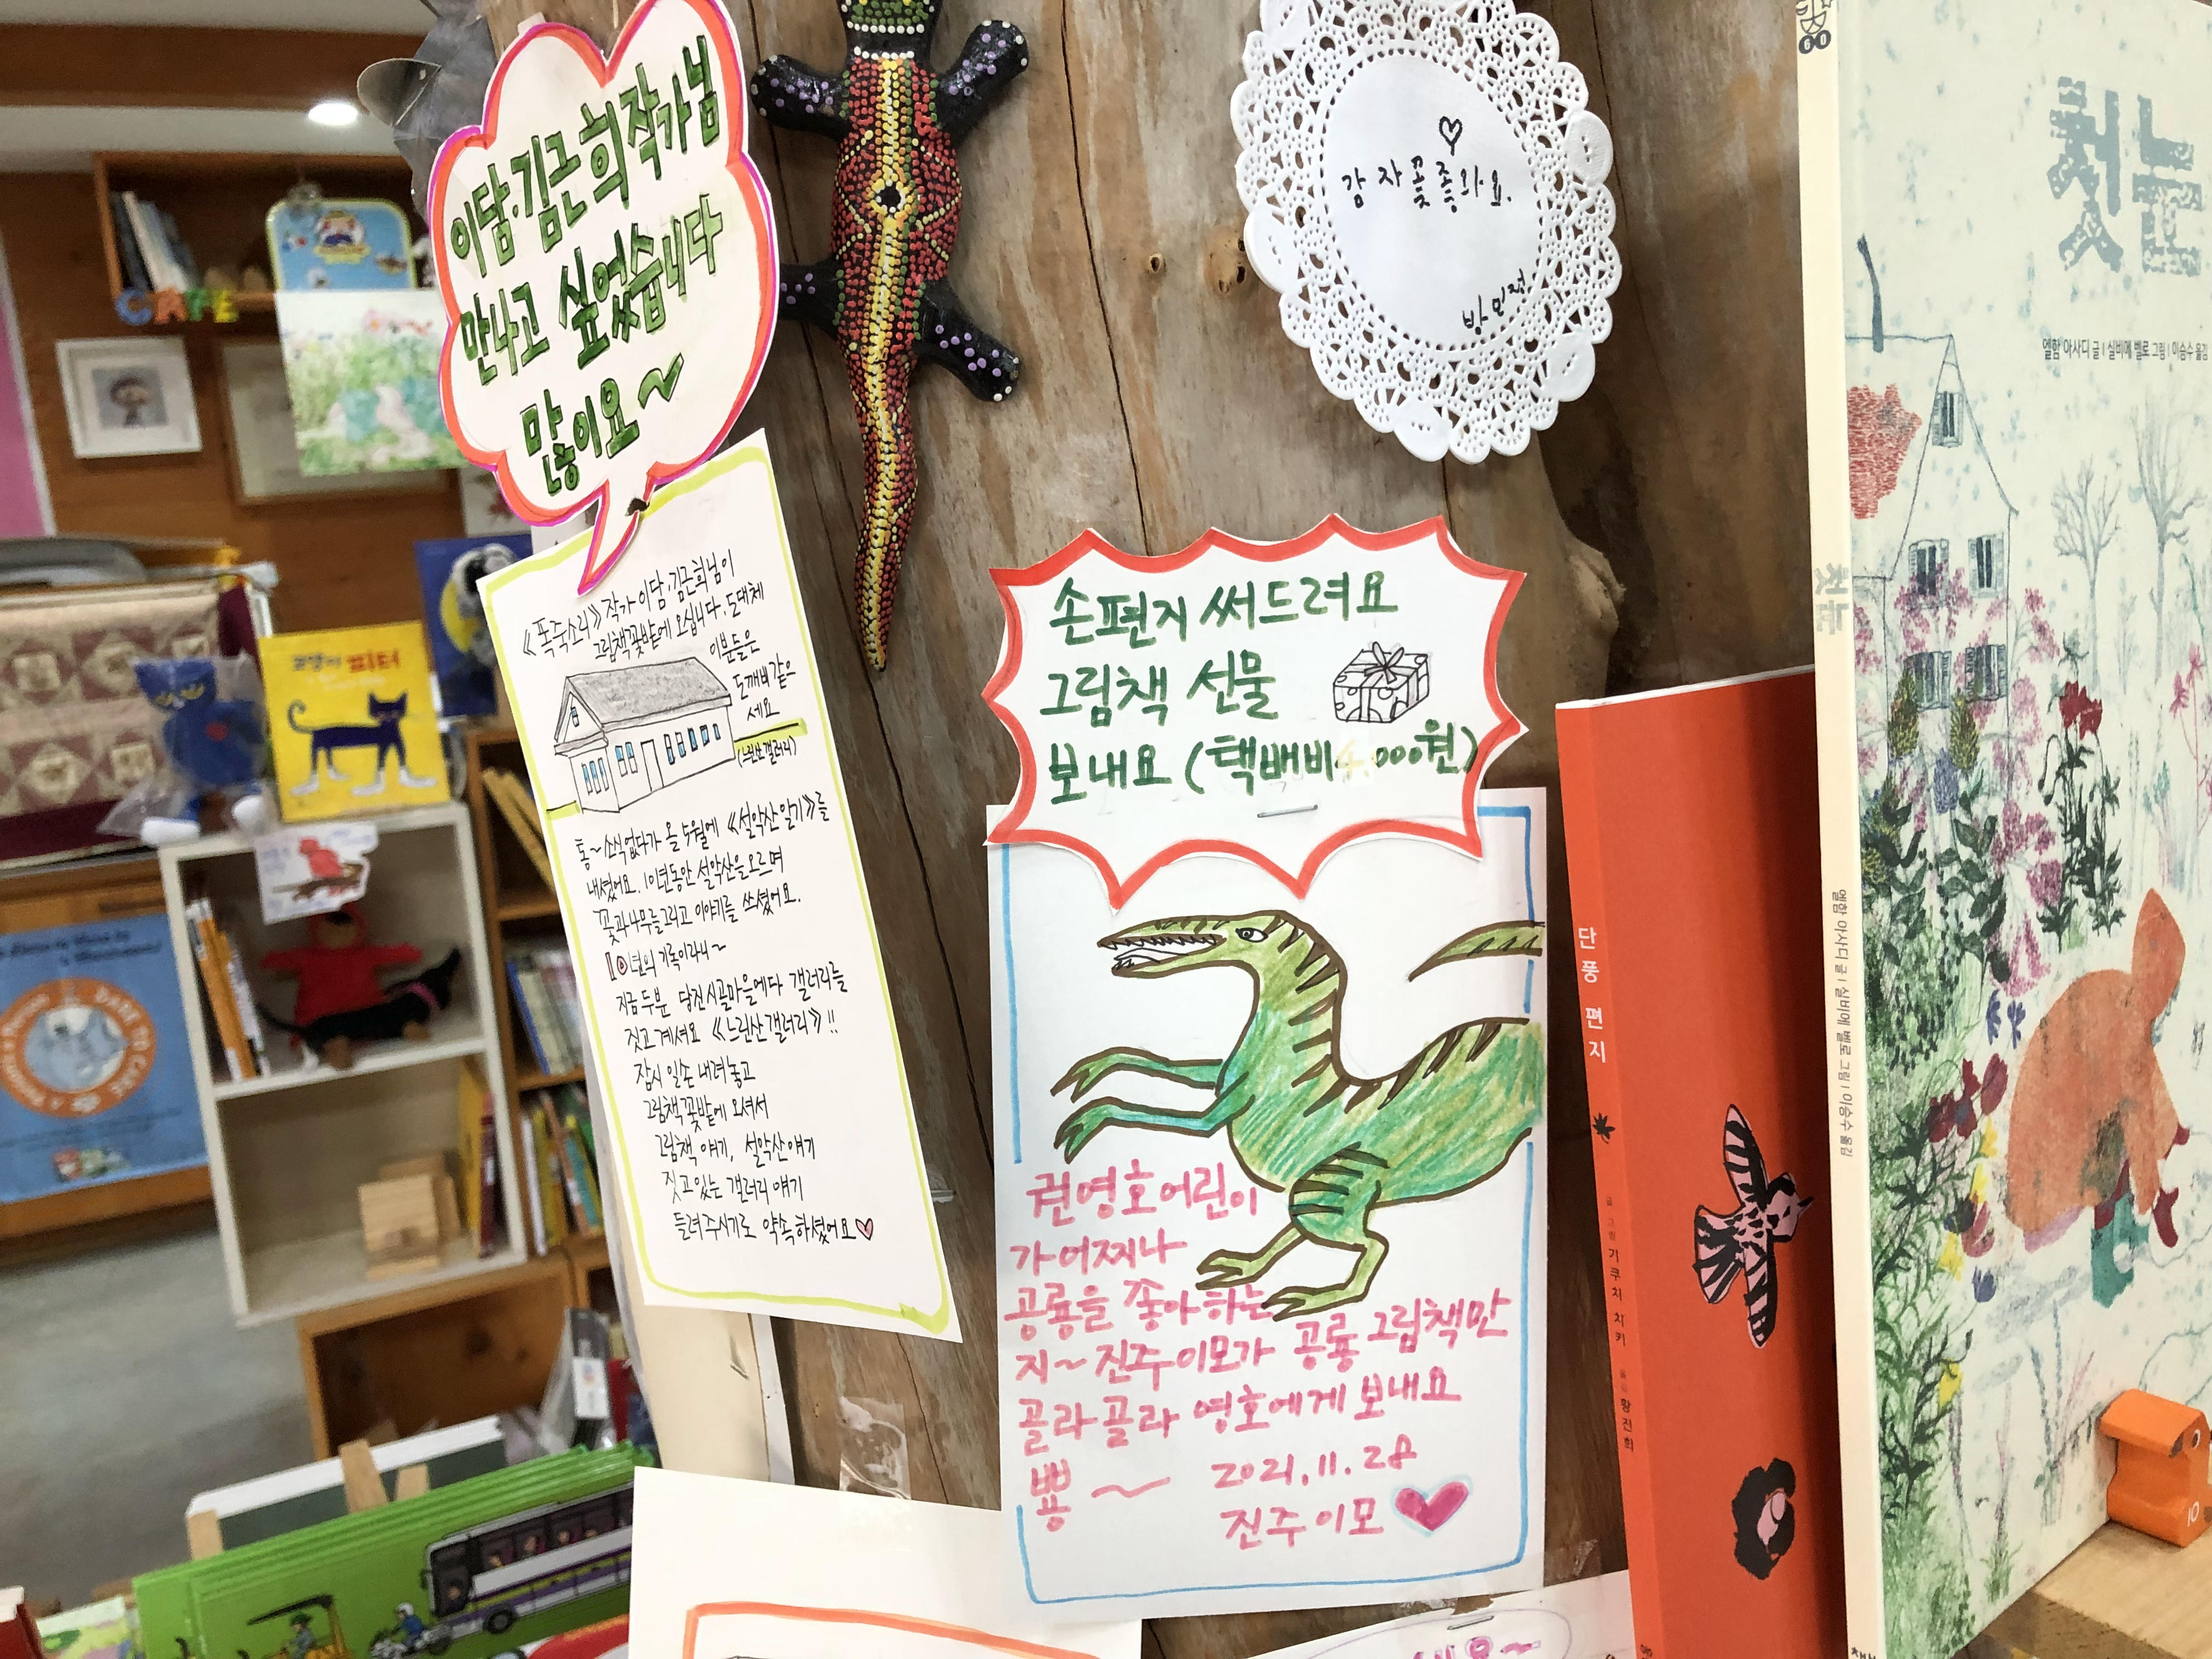 이담·김근희 작가님
만나고 싶었습니다
많이요~
《폭죽소리》 작가 이담·김근희님이
그림책꽃밭에 오십니다. 도대체
이분들은
도깨비같은
세요
(느린산갤러리)
통~ 소식없다가 올 5월에 《설악산일기》를
내셨어요. 10년동안 설악산을 오르며
꽃과 나무를 그리고 이야기를 쓰셨어요.
10년의 기록이라니~
지금 두분 당진 시골마을에다 갤러리를
짓고 계셔요 《느린산갤러리》!!
잠시 일손 내려놓고
그림책꽃밭에 오셔서
그림책 얘기, 설악산 얘기
짓고있는 갤러리 얘기
들려주시기로 약속하셨어요♡
♡
감자꽃 좋와요.
손편지 써드려요
그림책 선물
보내요 (택배비 4,000원)
권영호 어린이
가 어찌나
공룡을 좋아하는
지~ 진주이모가 공룡 그림책만
골라골라 영호에게 보내요
뿅~ 2021.11.28
진주이모
첫눈
엘함 아사디 글 | 실비에 벨로 그림 | 이승수 옮김
첫눈
엘함 아사디 글 | 실비에 벨로 그림 | 이승수 옮김
단풍 편지
기쿠치 치키
황진희
CAFE
고양이 피터
10